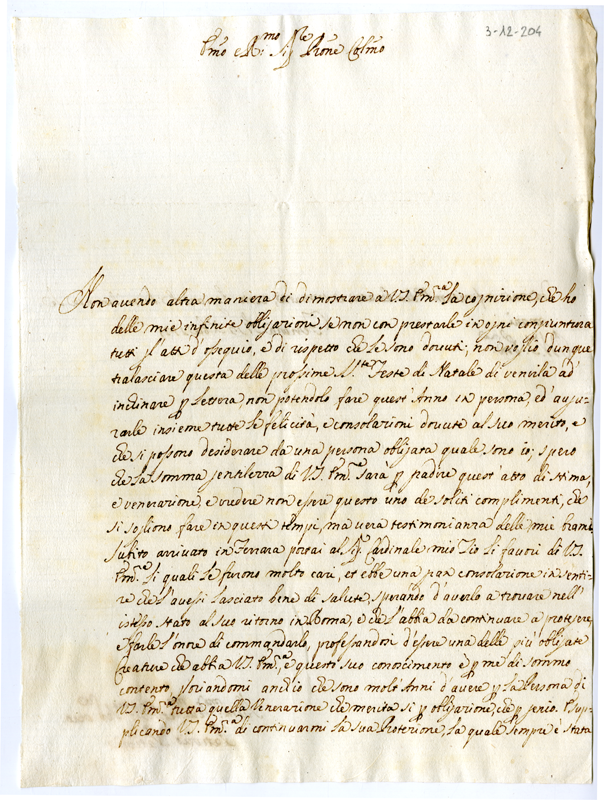 3-12-204
Em̃o e R.mo Sig.re P̃rone Col̃mo
Non auendo altra maniera di dimostrare a V.S. Em.a la cognizione, che ho
delle mie infinite obligazioni se non con prestarle in ogni congiuntura
tutti gl'atti d'ossequio, e di rispetto che le sono dovuti; non voglio dunque
tralasciare questa delle prossime S.te Feste di Natale di venirle ad
inchinare p lettera, non potendolo fare quest'Anno in persona, ed'augu-
rarle insieme tutte le felicità, e consolazioni dovute al suo merito, e
che si possono desiderare da una persona obligata quale sono io; spero
che la somma gentilezza di V.S. Em.a sarà p gradire quest'atto di stima,
e venerazione, e credere non essere questo uno de soliti complimenti, che
si sogliono fare in questi tempi, ma vera testimonianza delle mie brame
Subito arrivato in Ferrara portai al Sig.r Cardinale mio Zio li favori di V.S.
Em.a li quali le furono molto cari, et ebbe una gran consolazione in senti-
re che l'avessi lasciato bene di salute, sperando d'averlo a trovare nell'
istesso stato al suo ritorno in Roma, e che l'abbia da continuare a proteggere,
e farle l'onore di commandarlo, professandosi d'essere una delle più obligate
Creature che abbia V.S. Em.a, e questo suo conoscimento è p me di sommo
contento gloriandomi anch'io che sono molt'Anni d'avere p la Persona di
V.S. Em.a tutta quella Venerazione che merita si p obligazione, che p genio. E sup-
plicando V.S. Em.a di continuarmi la sua Protezione, la quale sempre è stata